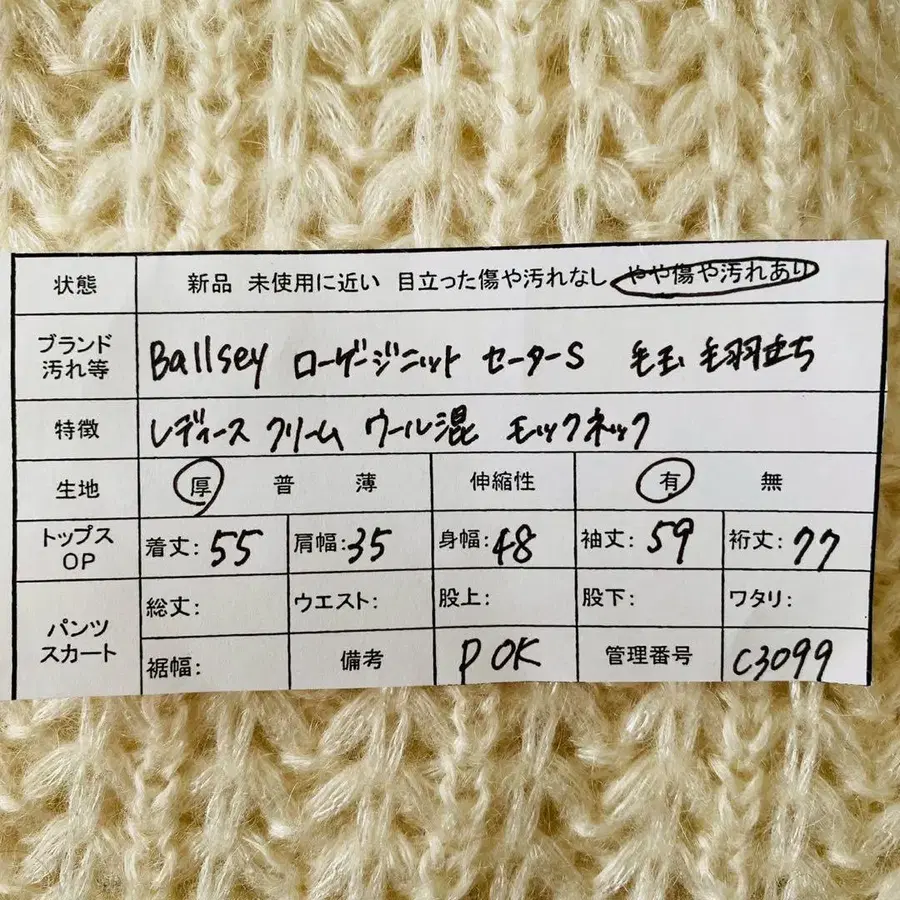 状態 新品 未使用に近い 目立った傷や汚れなし やや傷や汚れあり
ブランド
汚れ等 Ballsey ローゲージニット セーターS 毛玉 毛羽立ち
特徴 レディース クリーム ウール混 モックネック
生地 厚 普 薄 伸縮性 有 無
トップス
OP 着丈: 55 肩幅: 35 身幅: 48 袖丈: 59 裄丈: 77
パンツ
スカート 総丈: ウエスト: 股上: 股下: ワタリ:
裾幅: 備考 P OK 管理番号 C3099